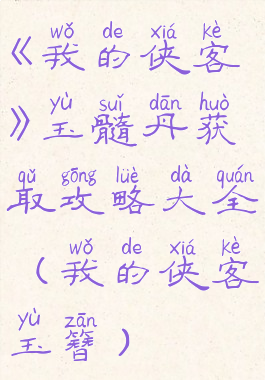 wǒ de xiá kè
《我的侠客
yù suǐ dān huò
》玉髓丹获
qǔ gōng lüè dà quán
取攻略大全
wǒ de xiá kè
（我的侠客
yù zān
玉簪）